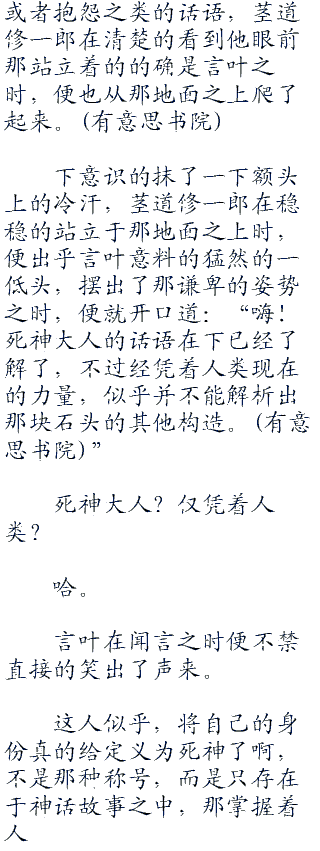 或者抱怨之类的话语，茎道
修一郎在清楚的看到他眼前
那站立着的的确是言叶之
时，便也从那地面之上爬了
起来。(有意思书院)
下意识的抹了一下额头
上的冷汗，茎道修一郎在稳
稳的站立于那地面之上时，
便出乎言叶意料的猛然的一
低头，摆出了那谦卑的姿势
之时，便就开口道：“嗨！
死神大人的话语在下已经了
解了，不过经凭着人类现在
的力量，似乎并不能解析出
那块石头的其他构造。(有意
思书院)”
死神大人？仅凭着人
类？
哈。
言叶在闻言之时便不禁
直接的笑出了声来。
这人似乎，将自己的身
份真的给定义为死神了啊，
不是那种称号，而是只存在
于神话故事之中，那掌握着
人